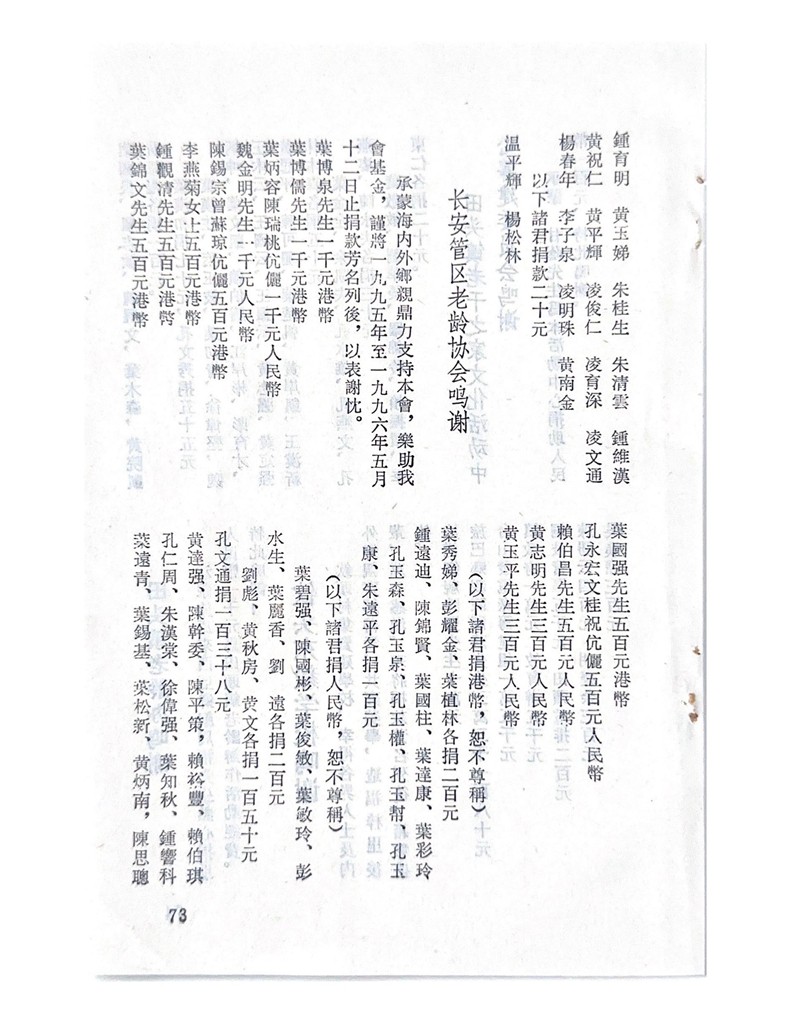 鍾育明 黄玉娣 朱桂生 朱清雲 鍾維漢
黄祝仁 黄平輝 凌俊仁 凌育深 凌文通
楊春年 李子泉 凌明珠 黄南金
以下諸君捐款二十元
温平輝 楊松林
长安管区老龄协会鸣谢
承蒙海内外鄉親鼎力支持本會，樂助我
會基金，謹將一九九五年至一九九六年五月
十二日止捐款芳名列後，以表謝忱。
葉博泉先生一千元港幣
葉博儒先生一千元港幣
葉炳容陳瑞桃伉儷一千元人民幣
魏金明先生一千元人民幣
陳錫宗曾蘇琼伉儷五百元港幣
李燕菊女士五百元港幣
鍾觀清先生五百元港幣
葉錦文先生五百元港幣
葉國强先生五百元港幣
孔永宏文桂祝伉儷五百元人民幣
賴伯昌先生五百元人民幣
黄志明先生三百元人民幣
黄玉平先生三百元人民幣
（以下諸君捐港幣，恕不尊稱）
葉秀娣、彭耀金、葉植林各捐二百元
鍾遠迪、陳錦賢、葉國柱、葉達康、葉彩玲
、孔玉森、孔玉泉、孔玉權、孔玉幇、孔玉
康、朱遠平各捐一百元
（以下諸君捐人民幣，恕不尊稱）
葉碧强、陳國彬、葉俊敏、葉敏玲、彭
水生、葉麗香、劉 遠各捐二百元
劉彪、黄秋房、黄文各捐一百五十元
孔文通捐一百三十八元
黄達强、陳幹委、陳平策，賴裕豐、賴伯琪
孔仁周、朱漢棠、徐偉强、葉知秋、鍾響科
葉遠青、葉錫基、葉松新、黄炳南，陳思聰
73